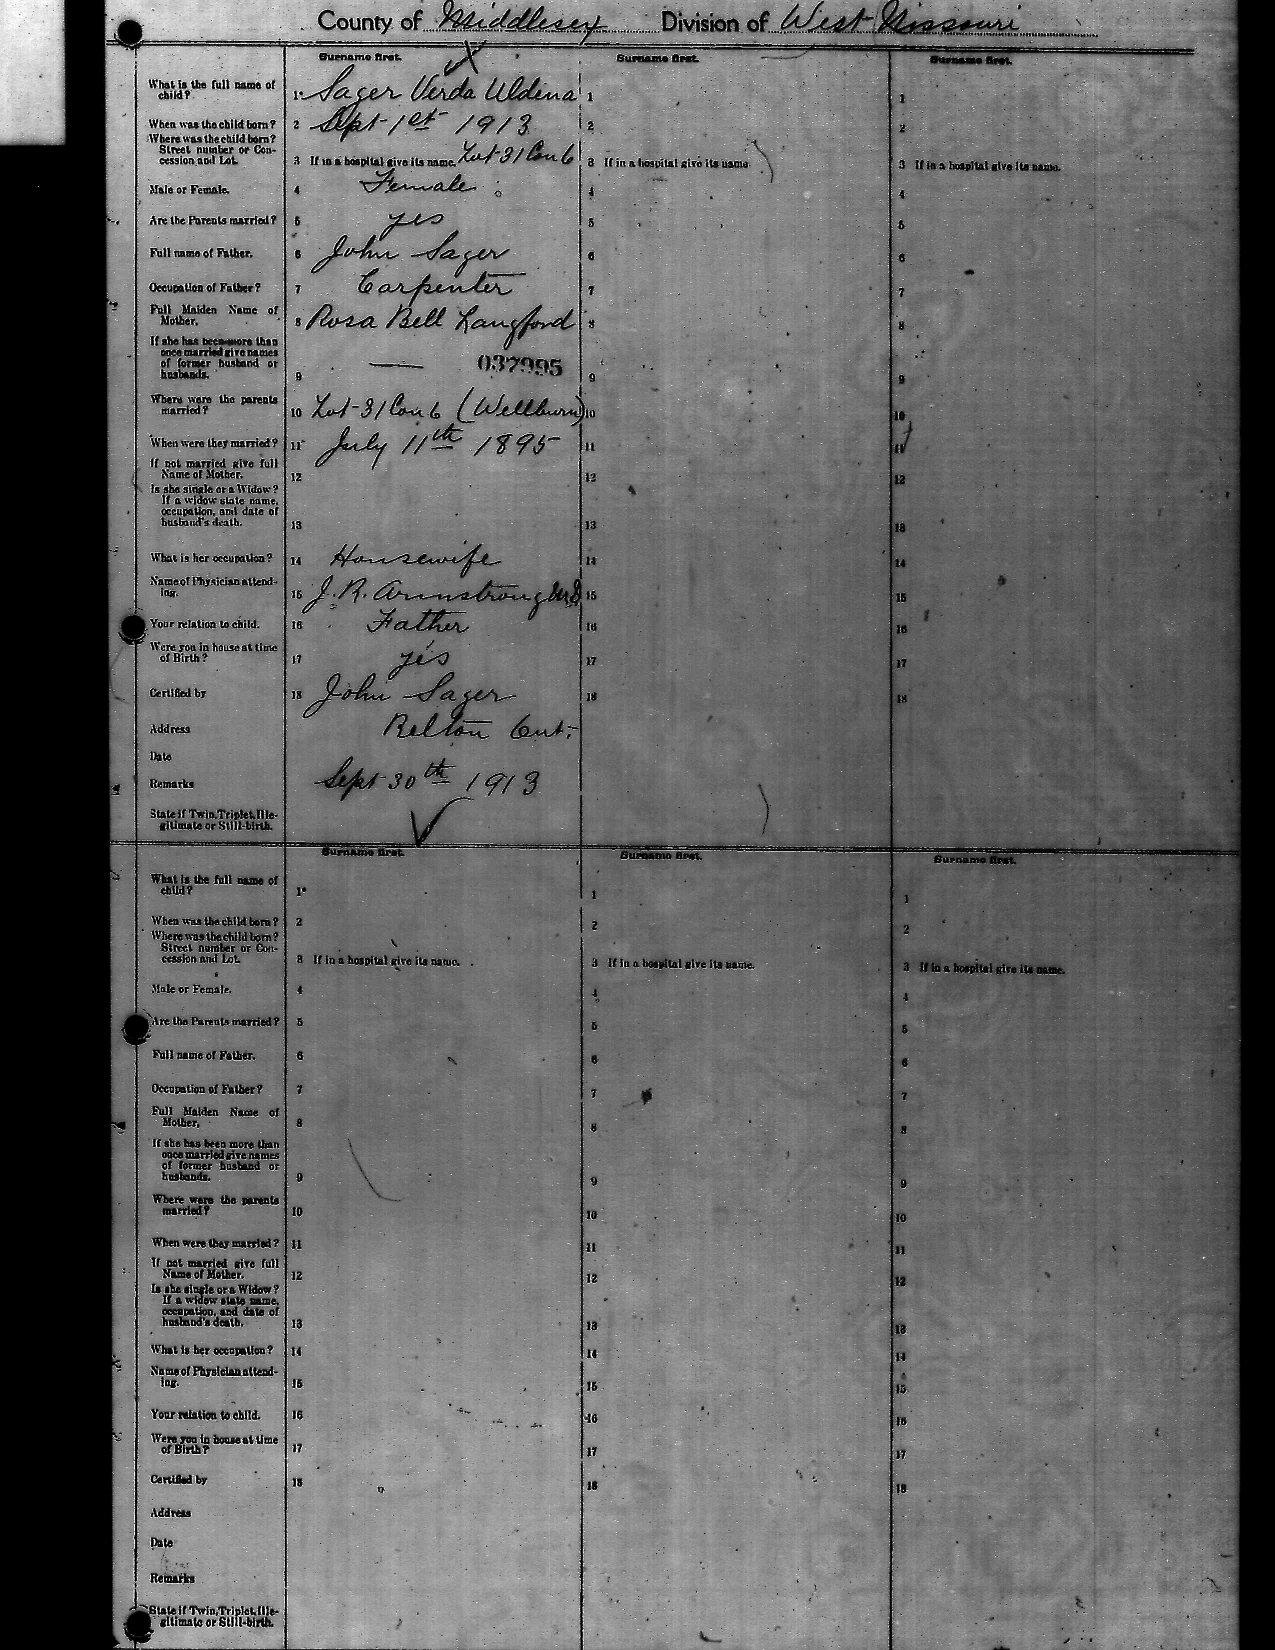 County of Middlesex Division of West Missouri
Surname first. Surname first. Surname first.
What is the full name of
child? 1 Sager Verda Uldena 1 1
When was the child born? 2 Sept 1st 1913 2 2
Where was the child born?
Street number or Con-
cession and Lot. 3 If in a hospital give its name. Lot 31 Con 6 3 If in a hospital give its name 3 If in a hospital give its name.
Male or Female. 4 Female 4 4
Are the Parents married? 5 yes 5 5
Full name of Father. 6 John Sager 6 6
Occupation of Father? 7 Carpenter 7 7
Full Maiden Name of
Mother. 8 Rosa Bell Langford 8 8
If she has been more than
once married give names
of former husband or
husbands. 9 — 037995 9 9
Where were the parents
married? 10 Lot 31 Con 6 (Wellburn) 10 10
When were they married? 11 July 11th 1895 11 11
If not married give full
Name of Mother. 12 12 12
Is she single or a Widow?
If a widow state name,
occupation, and date of
husband's death. 13 13 13
What is her occupation? 14 Housewife 14 14
Name of Physician attend-
ing. 15 J. R. Armstrong M.D 15 15
Your relation to child. 16 Father 16 16
Were you in house at time
of Birth? 17 yes 17 17
Certified by 18 John Sager 18 18
Address Belton Ont.
Date
Remarks Sept 30th 1913
State if Twin, Triplet, Ille-
gitimate or Still-birth.
Surname first. Surname first. Surname first.
What is the full name of
child? 1 1 1
When was the child born? 2 2 2
Where was the child born?
Street number or Con-
cession and Lot. 3 If in a hospital give its name. 3 If in a hospital give its name. 3 If in a hospital give its name.
Male or Female. 4 4 4
Are the Parents married? 5 5 5
Full name of Father. 6 6 6
Occupation of Father? 7 7 7
Full Maiden Name of
Mother. 8 8 8
If she has been more than
once married give names
of former husband or
husbands. 9 9 9
Where were the parents
married? 10 10 10
When were they married? 11 11 11
If not married give full
Name of Mother. 12 12 12
Is she single or a Widow?
If a widow state name,
occupation, and date of
husband's death. 13 13 13
What is her occupation? 14 14 14
Name of Physician attend-
ing. 15 15 15
Your relation to child. 16 16 16
Were you in house at time
of Birth? 17 17 17
Certified by 18 18 18
Address
Date
Remarks
State if Twin, Triplet, Ille-
gitimate or Still-birth.